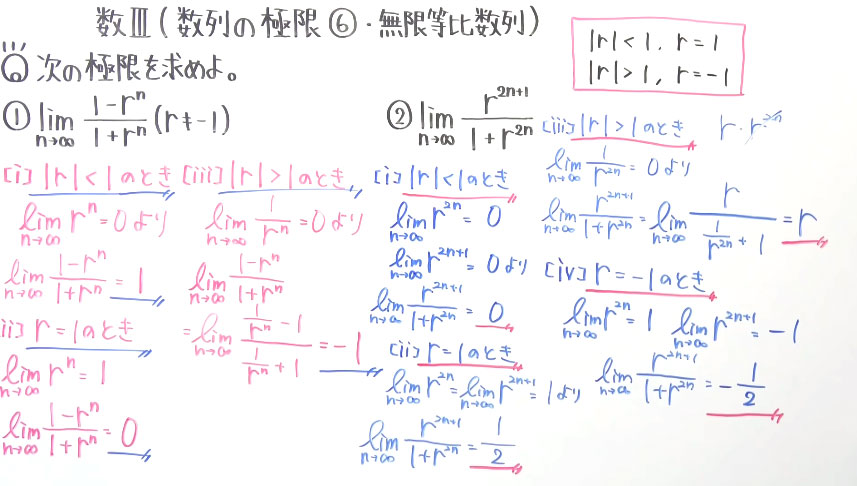 数Ⅲ(数列の極限⑥・無限等比数列)
|r|<1, r=1
|r|>1, r=-1
Q 次の極限を求めよ。
① lim[n→∞] (1-rⁿ)/(1+rⁿ) (r≠-1)
[i] |r|<1のとき
lim[n→∞] rⁿ=0より
lim[n→∞] (1-rⁿ)/(1+rⁿ)=1
ii] r=1のとき
lim[n→∞] rⁿ=1
lim[n→∞] (1-rⁿ)/(1+rⁿ)=0
[iii] |r|>1のとき
lim[n→∞] 1/rⁿ=0より
lim[n→∞] (1-rⁿ)/(1+rⁿ)
=lim[n→∞] (1/rⁿ-1)/(1/rⁿ+1)=-1
② lim[n→∞] r²ⁿ⁺¹/(1+r²ⁿ)
[i] |r|<1のとき
lim[n→∞] r²ⁿ=0
lim[n→∞] r²ⁿ⁺¹=0より
lim[n→∞] r²ⁿ⁺¹/(1+r²ⁿ)=0
[ii] r=1のとき
lim[n→∞] r²ⁿ=lim[n→∞] r²ⁿ⁺¹=1より
lim[n→∞] r²ⁿ⁺¹/(1+r²ⁿ)=1/2
[iii] |r|>1のとき r・r²ⁿ
lim[n→∞] 1/r²ⁿ=0より
lim[n→∞] r²ⁿ⁺¹/(1+r²ⁿ)=lim[n→∞] r/(1/r²ⁿ+1)=r
[iv] r=-1のとき
lim[n→∞] r²ⁿ=1 lim[n→∞] r²ⁿ⁺¹=-1
lim[n→∞] r²ⁿ⁺¹/(1+r²ⁿ)=-1/2